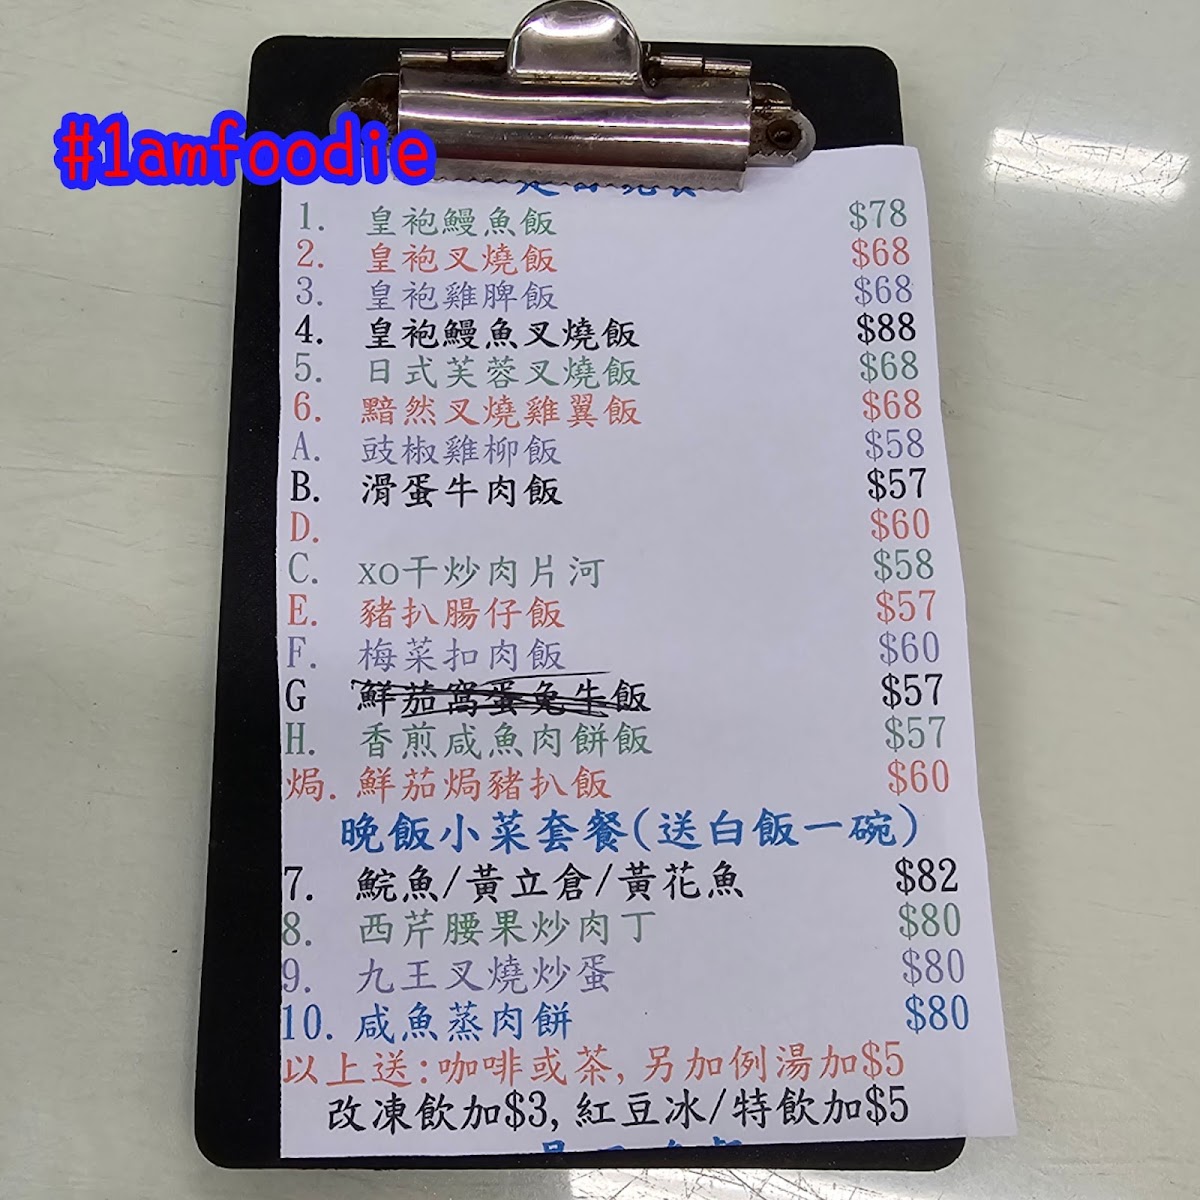 #1amfoodie
1. 皇袍鰻魚飯 $78
2. 皇袍叉燒飯 $68
3. 皇袍雞脾飯 $68
4. 皇袍鰻魚叉燒飯 $88
5. 日式芙蓉叉燒飯 $68
6. 黯然叉燒雞翼飯 $68
A. 豉椒雞柳飯 $58
B. 滑蛋牛肉飯 $57
D. $60
C. xo干炒肉片河 $58
E. 豬扒腸仔飯 $57
F. 梅菜扣肉飯 $60
G 鮮茄窩蛋免牛飯 $57
H. 香煎咸魚肉餅飯 $57
焗. 鮮茄焗豬扒飯 $60
晚飯小菜套餐(送白飯一碗)
7. 鯇魚/黃立倉/黃花魚 $82
8. 西芹腰果炒肉丁 $80
9. 九王叉燒炒蛋 $80
10. 咸魚蒸肉餅 $80
以上送:咖啡或茶, 另加例湯加$5
改凍飲加$3, 紅豆冰/特飲加$5